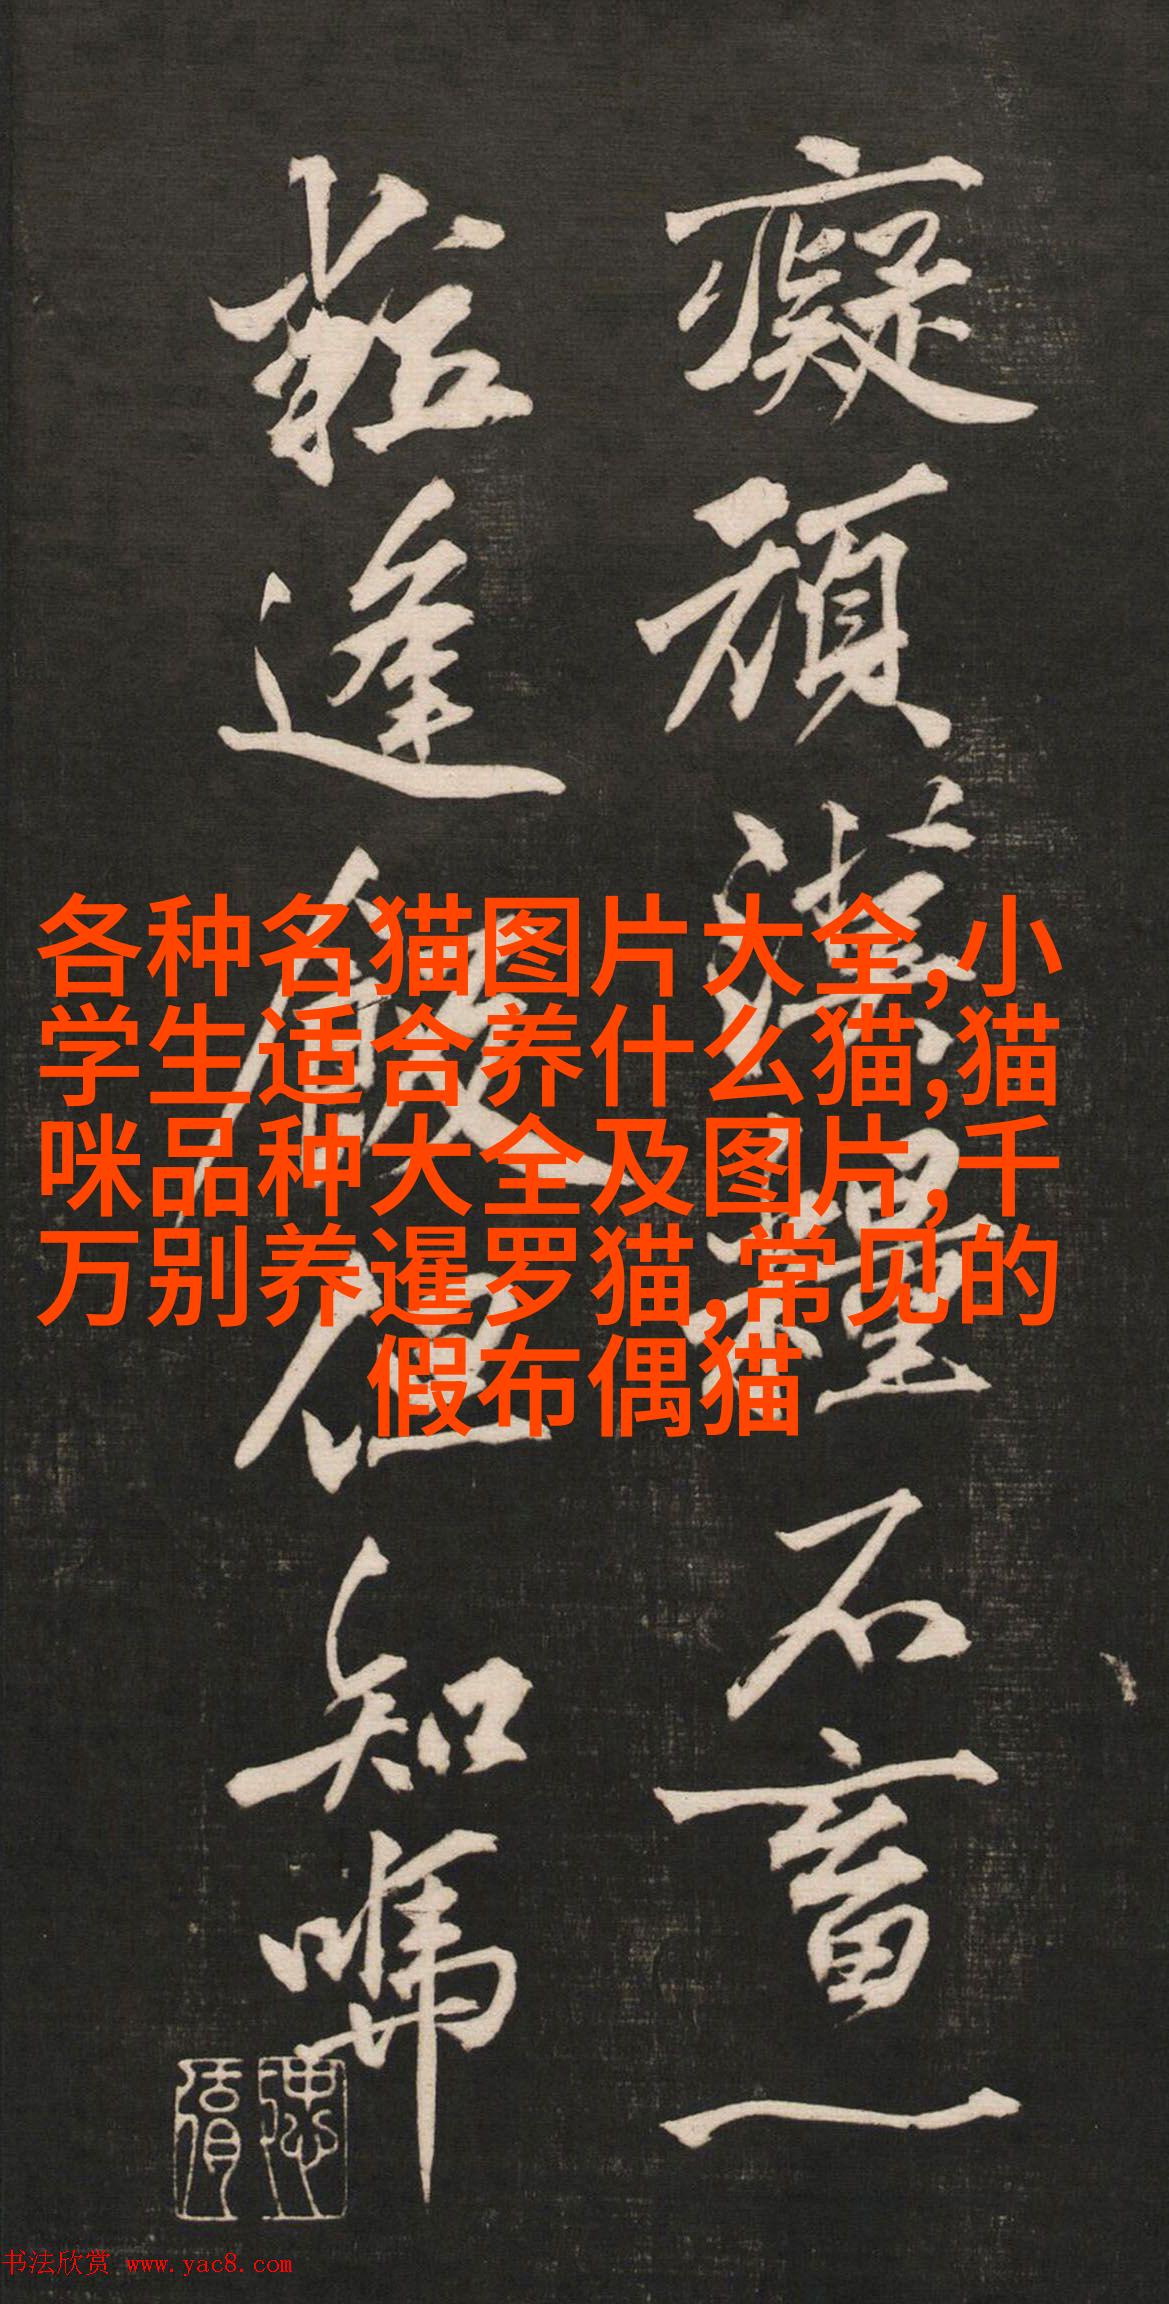 癡頑漢糧不畜一
粒逢飯但知
各种名猫图片大全,小
学生适合养什么猫,猫
咪品种大全及图片,千
万别养暹罗猫,常见的
假布偶猫
书法欣赏 www.yac8.com